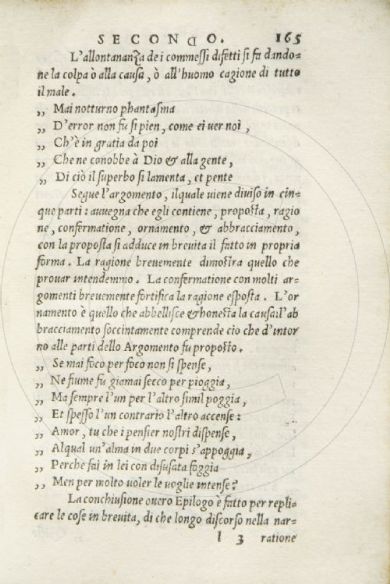 SECONDO. 165
L'allontananza de i commessi difetti si fa dando-
ne la colpa ò alla causa, ò all'huomo cagione di tutto
il male.
,, Mai notturno phantasma
,, D'error non fu si pien, come ei ver noi,
,, Ch'è in gratia da poi
,, Che ne conobbe à Dio & alla gente,
,, Di ciò il superbo si lamenta, et pente
Segue l'argomento, ilquale uiene diuiso in cin-
que parti: auuegna che egli contiene, proposta, ragio
ne, confermatione, ornamento, & abbracciamento,
con la proposta si adduce in breuita il fatto in propria
forma. La ragione breuemente dimostra quello che
prouar intendemmo. La confermatione con molti ar-
gomenti breuemente fortifica la ragione esposta. L'or
namento è quello che abbellisce & honesta la causa: l'ab
bracciamento soccintamente comprende cio che d'intor
no alle parti dello Argomento fu proposto.
,, Se mai foco per foco non si spense,
,, Ne fiume fu giamai secco per pioggia,
,, Ma sempre l'un per l'altro simil poggia,
,, Et spesso l'un contrario l'altro accense:
,, Amor, tu che i pensier nostri dispense,
,, Alqual un'alma in due corpi s'appoggia,
,, Perche fai in lei con disusata foggia
,, Men per molto uoler le uoglie intense?
La conchiusione ouero Epilogo è fatto per repli-
care le cose in breuita, di che longo discorso nella nar-
l 3 ratione